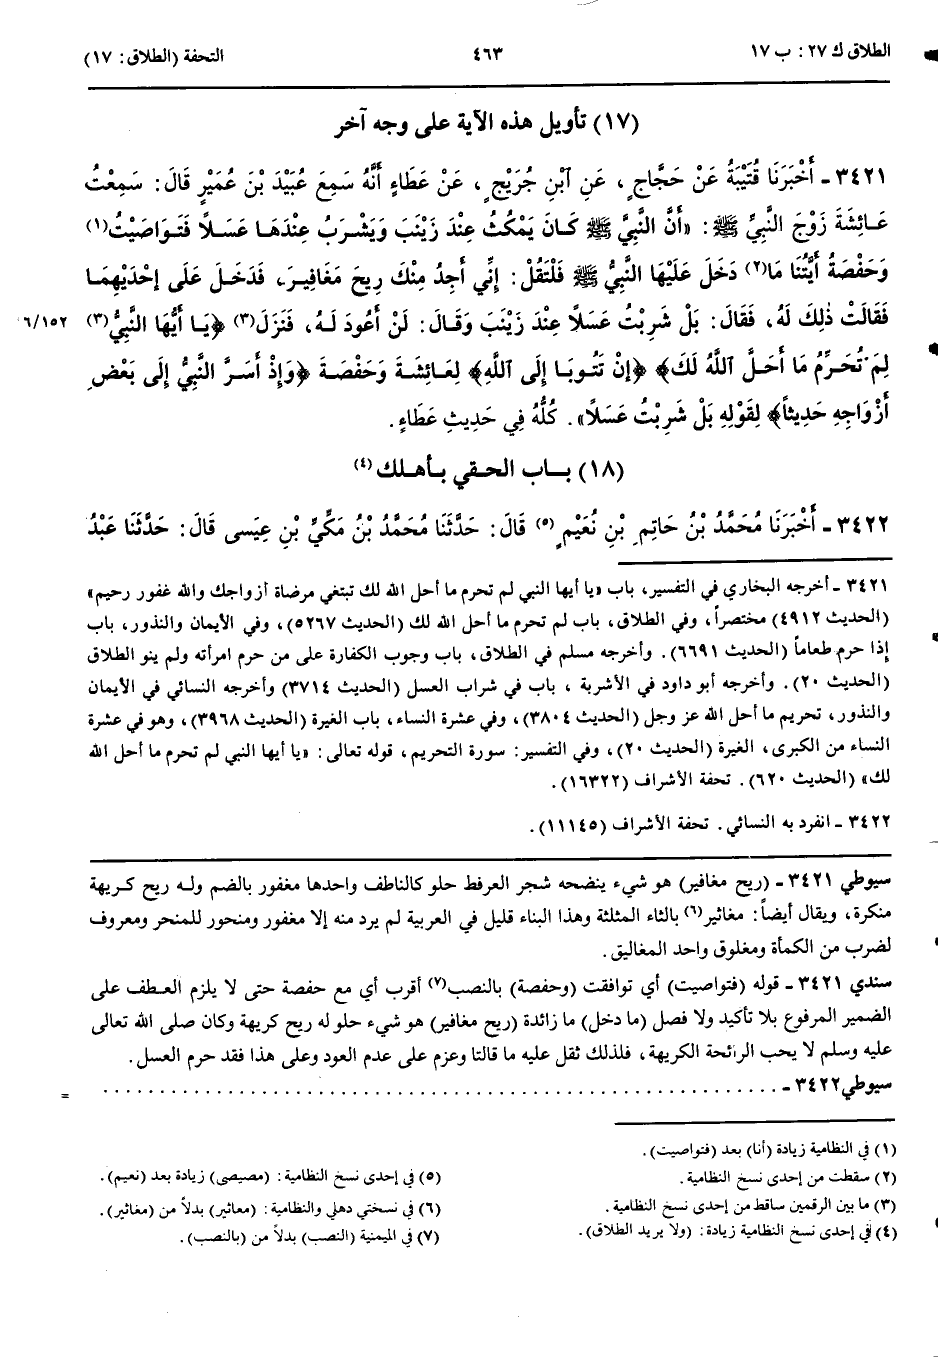 الطلاق ك ٢٧: ب ١٧
٤٦٣
التحفة (الطلاق: ١٧)
(١٧) تأويل هذه الآية على وجه آخر
٣٤٢١ - أَخْبَرَنَا قُتَيْبَةُ عَنْ حَجَّاجٍ، عَنِ ٱبْنِ جُرَيْجٍ، عَنْ عَطَاءٍ أَنَّهُ سَمِعَ عُبَيْدَ بْنَ عُمَيْرٍ قَالَ: سَمِعْتُ
عَائِشَةَ زَوْجَ النَّبِيِّ ﷺ: «أَنَّ النَّبِيَّ ﷺ كَانَ يَمْكُثُ عِنْدَ زَيْنَبَ وَيَشْرَبُ عِنْدَهَا عَسَلًا فَتَوَاصَيْتُ(١)
وَحَفْصَةُ أَيَّتُنَا مَا(٢) دَخَلَ عَلَيْهَا النَّبِيُّ ﷺ فَلْتَقُلْ: إِنِّي أَجِدُ مِنْكَ رِيحَ مَغَافِيرَ، فَدَخَلَ عَلَى إِحْدَيْهِمَا
فَقَالَتْ ذٰلِكَ لَهُ، فَقَالَ: بَلْ شَرِبْتُ عَسَلًا عِنْدَ زَيْنَبَ وَقَالَ: لَنْ أَعُودَ لَهُ، فَنَزَلَ(٣) ﴿يَا أَيُّهَا النَّبِيُّ(٣)
٦/١٥٢
لِمَ تُحَرِّمُ مَا أَحَلَّ ٱللَّهُ لَكَ﴾ ﴿إِنْ تَتُوبَا إِلَى ٱللَّهِ﴾ لِعَائِشَةَ وَحَفْصَةَ ﴿وَإِذْ أَسَرَّ النَّبِيُّ إِلَى بَعْضِ
أَزْوَاجِهِ حَدِيثاً﴾ لِقَوْلِهِ بَلْ شَرِبْتُ عَسَلًا». كُلُّهُ فِي حَدِيثِ عَطَاءٍ.
(١٨) باب الحقي بأهلك(٤)
٣٤٢٢ - أَخْبَرَنَا مُحَمَّدُ بْنُ حَاتِمِ بْنِ نُعَيْمٍ(٥) قَالَ: حَدَّثَنَا مُحَمَّدُ بْنُ مَكِّيِّ بْنِ عِيَسى قَالَ: حَدَّثَنَا عَبْدُ
٣٤٢١ - أخرجه البخاري في التفسير، باب «يا أيها النبي لم تحرم ما أحل الله لك تبتغي مرضاة أزواجك والله غفور رحيم»
(الحديث ٤٩١٢) مختصراً، وفي الطلاق، باب لم تحرم ما أحل الله لك (الحديث ٥٢٦٧)، وفي الأيمان والنذور، باب
إذا حرم طعاماً (الحديث ٦٦٩١). وأخرجه مسلم في الطلاق، باب وجوب الكفارة على من حرم امرأته ولم ينو الطلاق
(الحديث ٢٠). وأخرجه أبو داود في الأشربة، باب في شراب العسل (الحديث ٣٧١٤) وأخرجه النسائي في الأيمان
والنذور، تحريم ما أحل الله عز وجل (الحديث ٣٨٠٤)، وفي عشرة النساء، باب الغيرة (الحديث ٣٩٦٨)، وهو في عشرة
النساء من الكبرى، الغيرة (الحديث ٢٠)، وفي التفسير: سورة التحريم، قوله تعالى: «يا أيها النبي لم تحرم ما أحل الله
لك» (الحديث ٦٢٠). تحفة الأشراف (١٦٣٢٢).
٣٤٢٢ - انفرد به النسائي. تحفة الأشراف (١١١٤٥).
سيوطي ٣٤٢١ - (ريح مغافير) هو شيء ينضحه شجر العرفط حلو كالناطف واحدها مغفور بالضم وله ريح كريهة
منكرة، ويقال أيضاً: مغاثير(٦) بالثاء المثلثة وهذا البناء قليل في العربية لم يرد منه إلا مغفور ومنحور للمنحر ومعروف
لضرب من الكمأة ومغلوق واحد المغاليق.
سندي ٣٤٢١ - قوله (فتواصيت) أي توافقت (وحفصة) بالنصب(٧) أقرب أي مع حفصة حتى لا يلزم العطف على
الضمير المرفوع بلا تأكيد ولا فصل (ما دخل) ما زائدة (ريح مغافير) هو شيء حلو له ريح كريهة وكان صلى الله تعالى
عليه وسلم لا يحب الرائحة الكريهة، فلذلك ثقل عليه ما قالتا وعزم على عدم العود وعلى هذا فقد حرم العسل.
سيوطي ٣٤٢٢ - ..................................................
=
(١) في النظامية زيادة (أنا) بعد (فتواصيت).
(٢) سقطت من إحدى نسخ النظامية.
(٣) ما بين الرقمين ساقط من إحدى نسخ النظامية.
(٤) في إحدى نسخ النظامية زيادة: (ولا يريد الطلاق).
(٥) في إحدى نسخ النظامية: (مصيصي) زيادة بعد (نعيم).
(٦) في نسختي دهلي والنظامية: (معاثير) بدلاً من (مغاثير).
(٧) في الميمنية (النصب) بدلاً من (بالنصب).